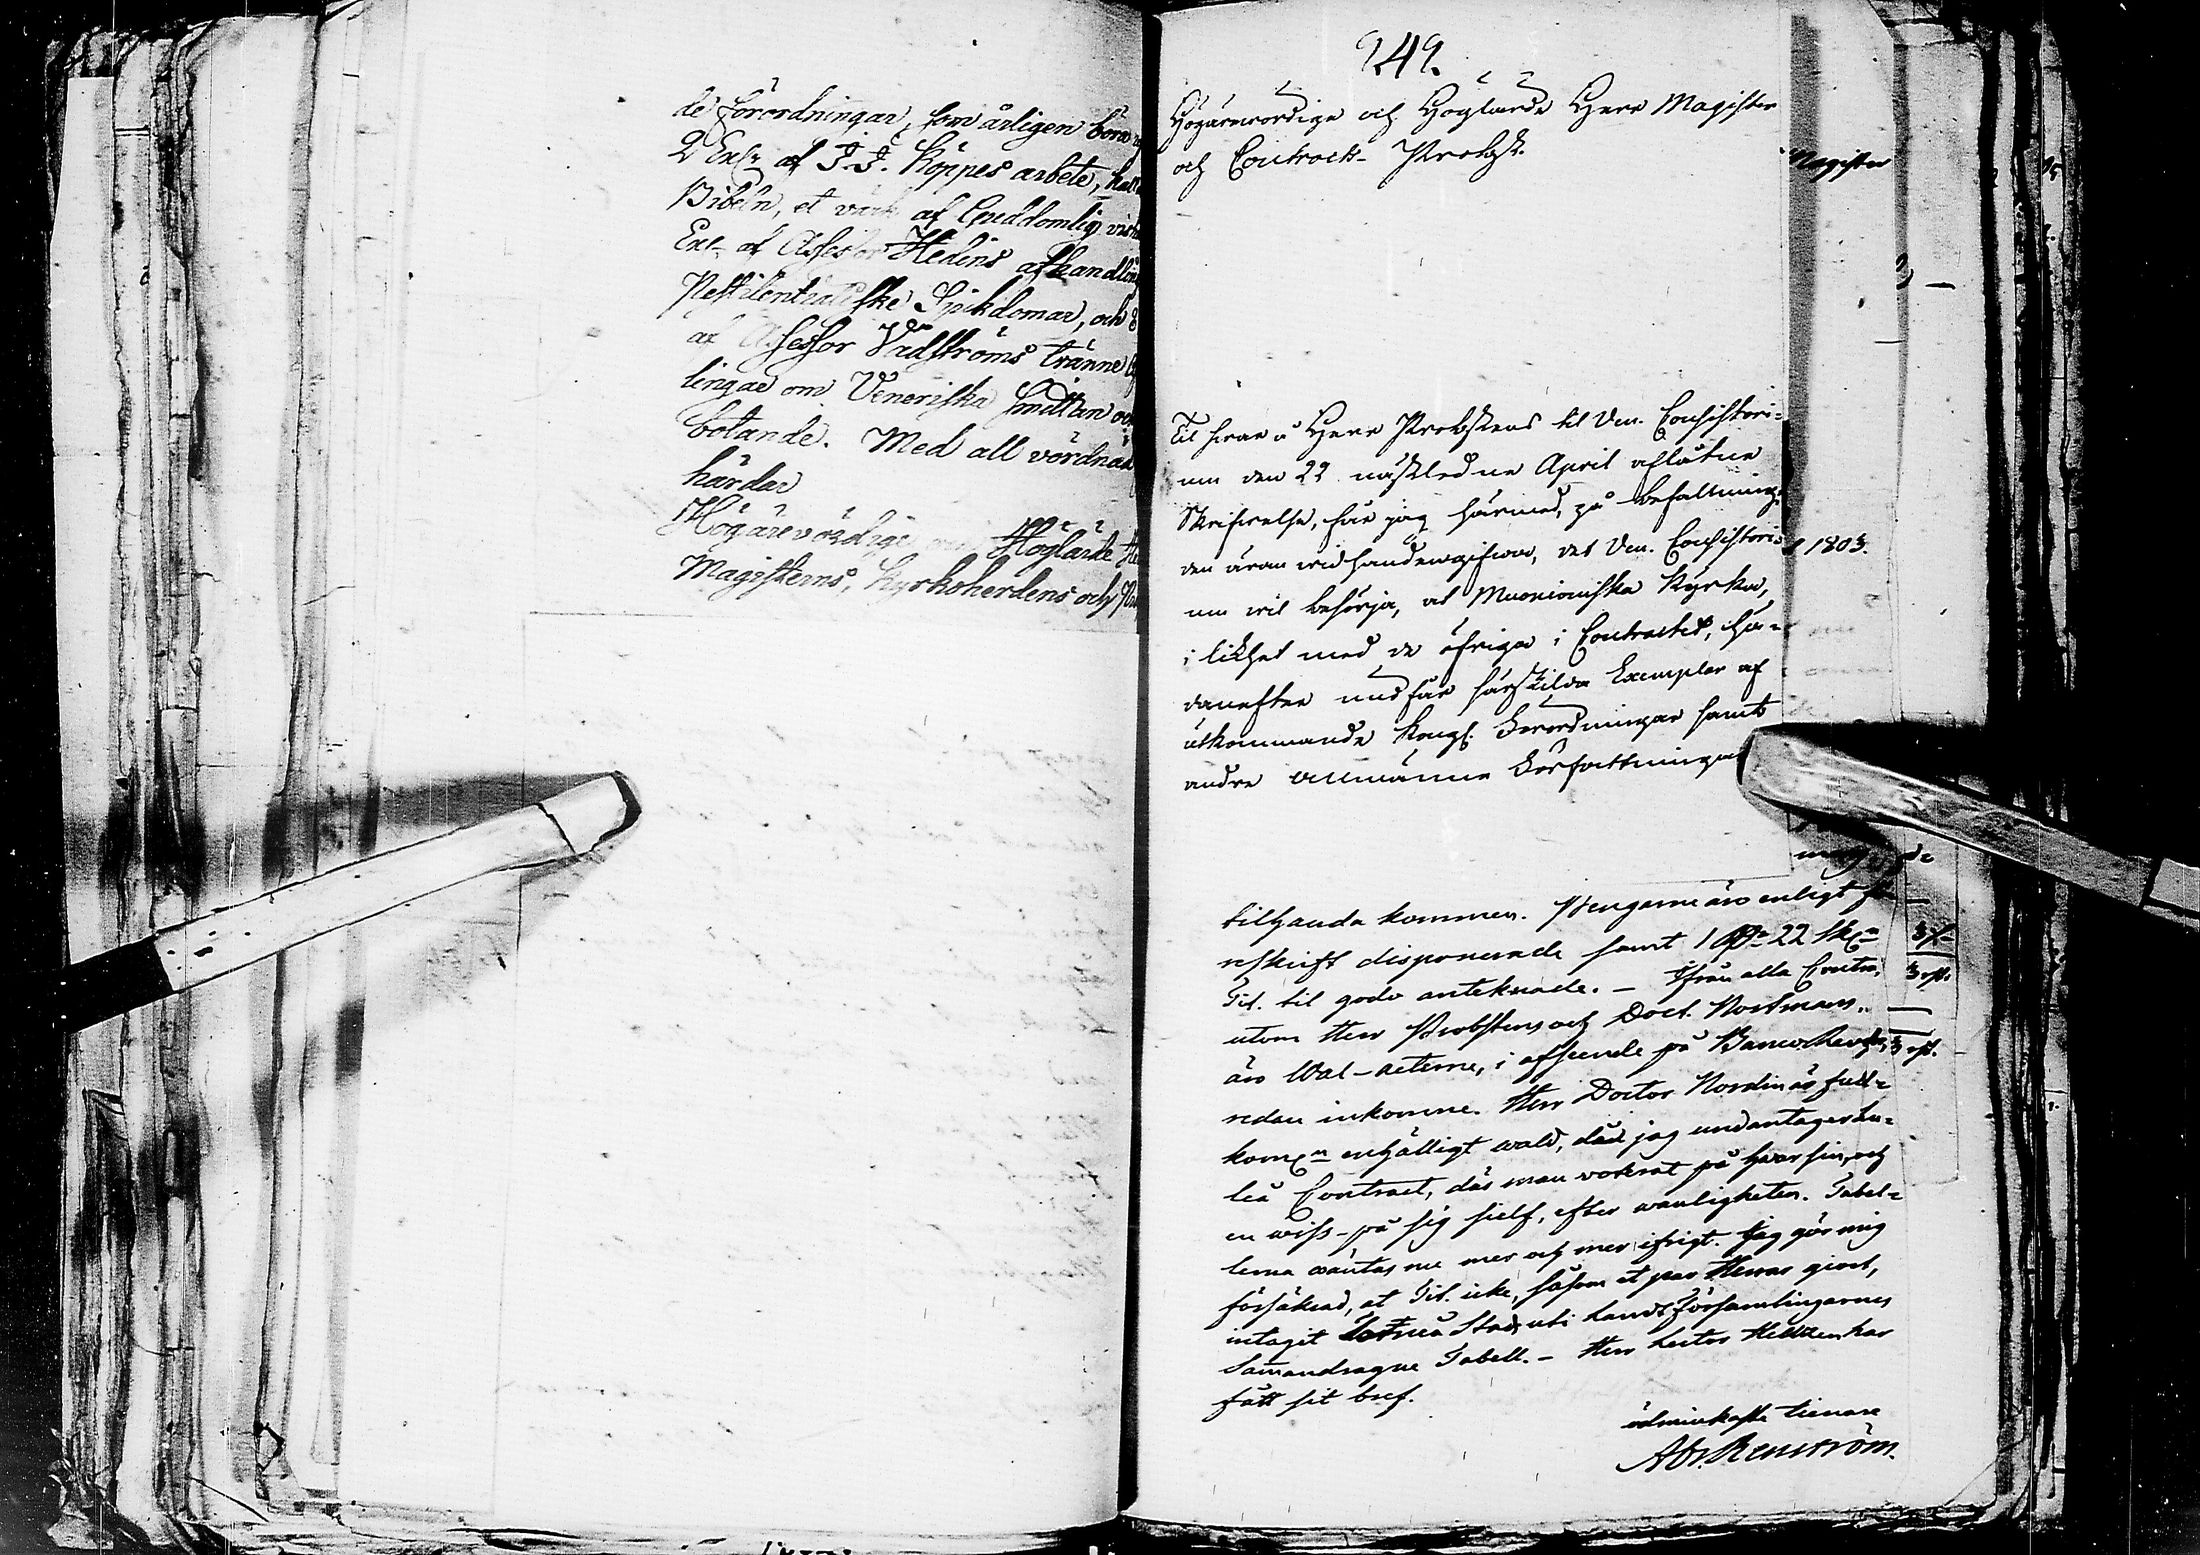 de förordningar, som årligen böra
2 Exr af J. J. Köppes arbete, kall
Bibeln, et värk af Guddomlig vish
Exr af Assessor Hedins afhandling
Pestilentialiske Sjukdomar, och 8
af Assessor Vadströms tränne
lingar om Veneriska Smittan och
botande. Med all vördnad
härdar
Högärevördige och Höglärde
Magisterns, Kyrkoherdens och
949.
Högärewördige och Höglärde Herr Magister
och Contracts-Probst.
Til swar å Herr Probstens til Ven. Consistori-
um den 22 nästledne April aflåtne
Skrifwelse, får jag härmed, på befallning,
den äran wid handen gifwa, det Ven. Consistori-
um wil besörja, at Muonioniska Kyrka,
i likhet med de öfriga i Contractet, hä-
danefter må få särskilda Exemplar af
utkommande Kongl. Förordningar samt
andre allmänne Författningar
Magister
1803.
tilhanda kommen. Pengarne äro enligt
reskrift disponerade samt 1 Rdr 22 sk
Tit. til godo anteknade. - Ifrån alla Contr.
utom Herr Probstens och Doct. Nortmans
äro Wal-acterne, i afseende på
redan inkomne. Herr Doctor Nordin är full-
kom enhälligt wald, då jag undantager Lu-
leå Contract, där man voterat på hwar sin, och
en wiss på sig sielf, efter wanligheten. Tabel-
lerna wäntas nu mer och mer ifrigt. Jag gör mig
försäkrad, at Tit. icke, såsom et par Herrar giort,
intagit Torneå Stad uti Landtförsamlingarnes
Samandragne Tabell. - Herr Lector har
fått sit bref.
ödmiukaste tienare
Abr. Renström.